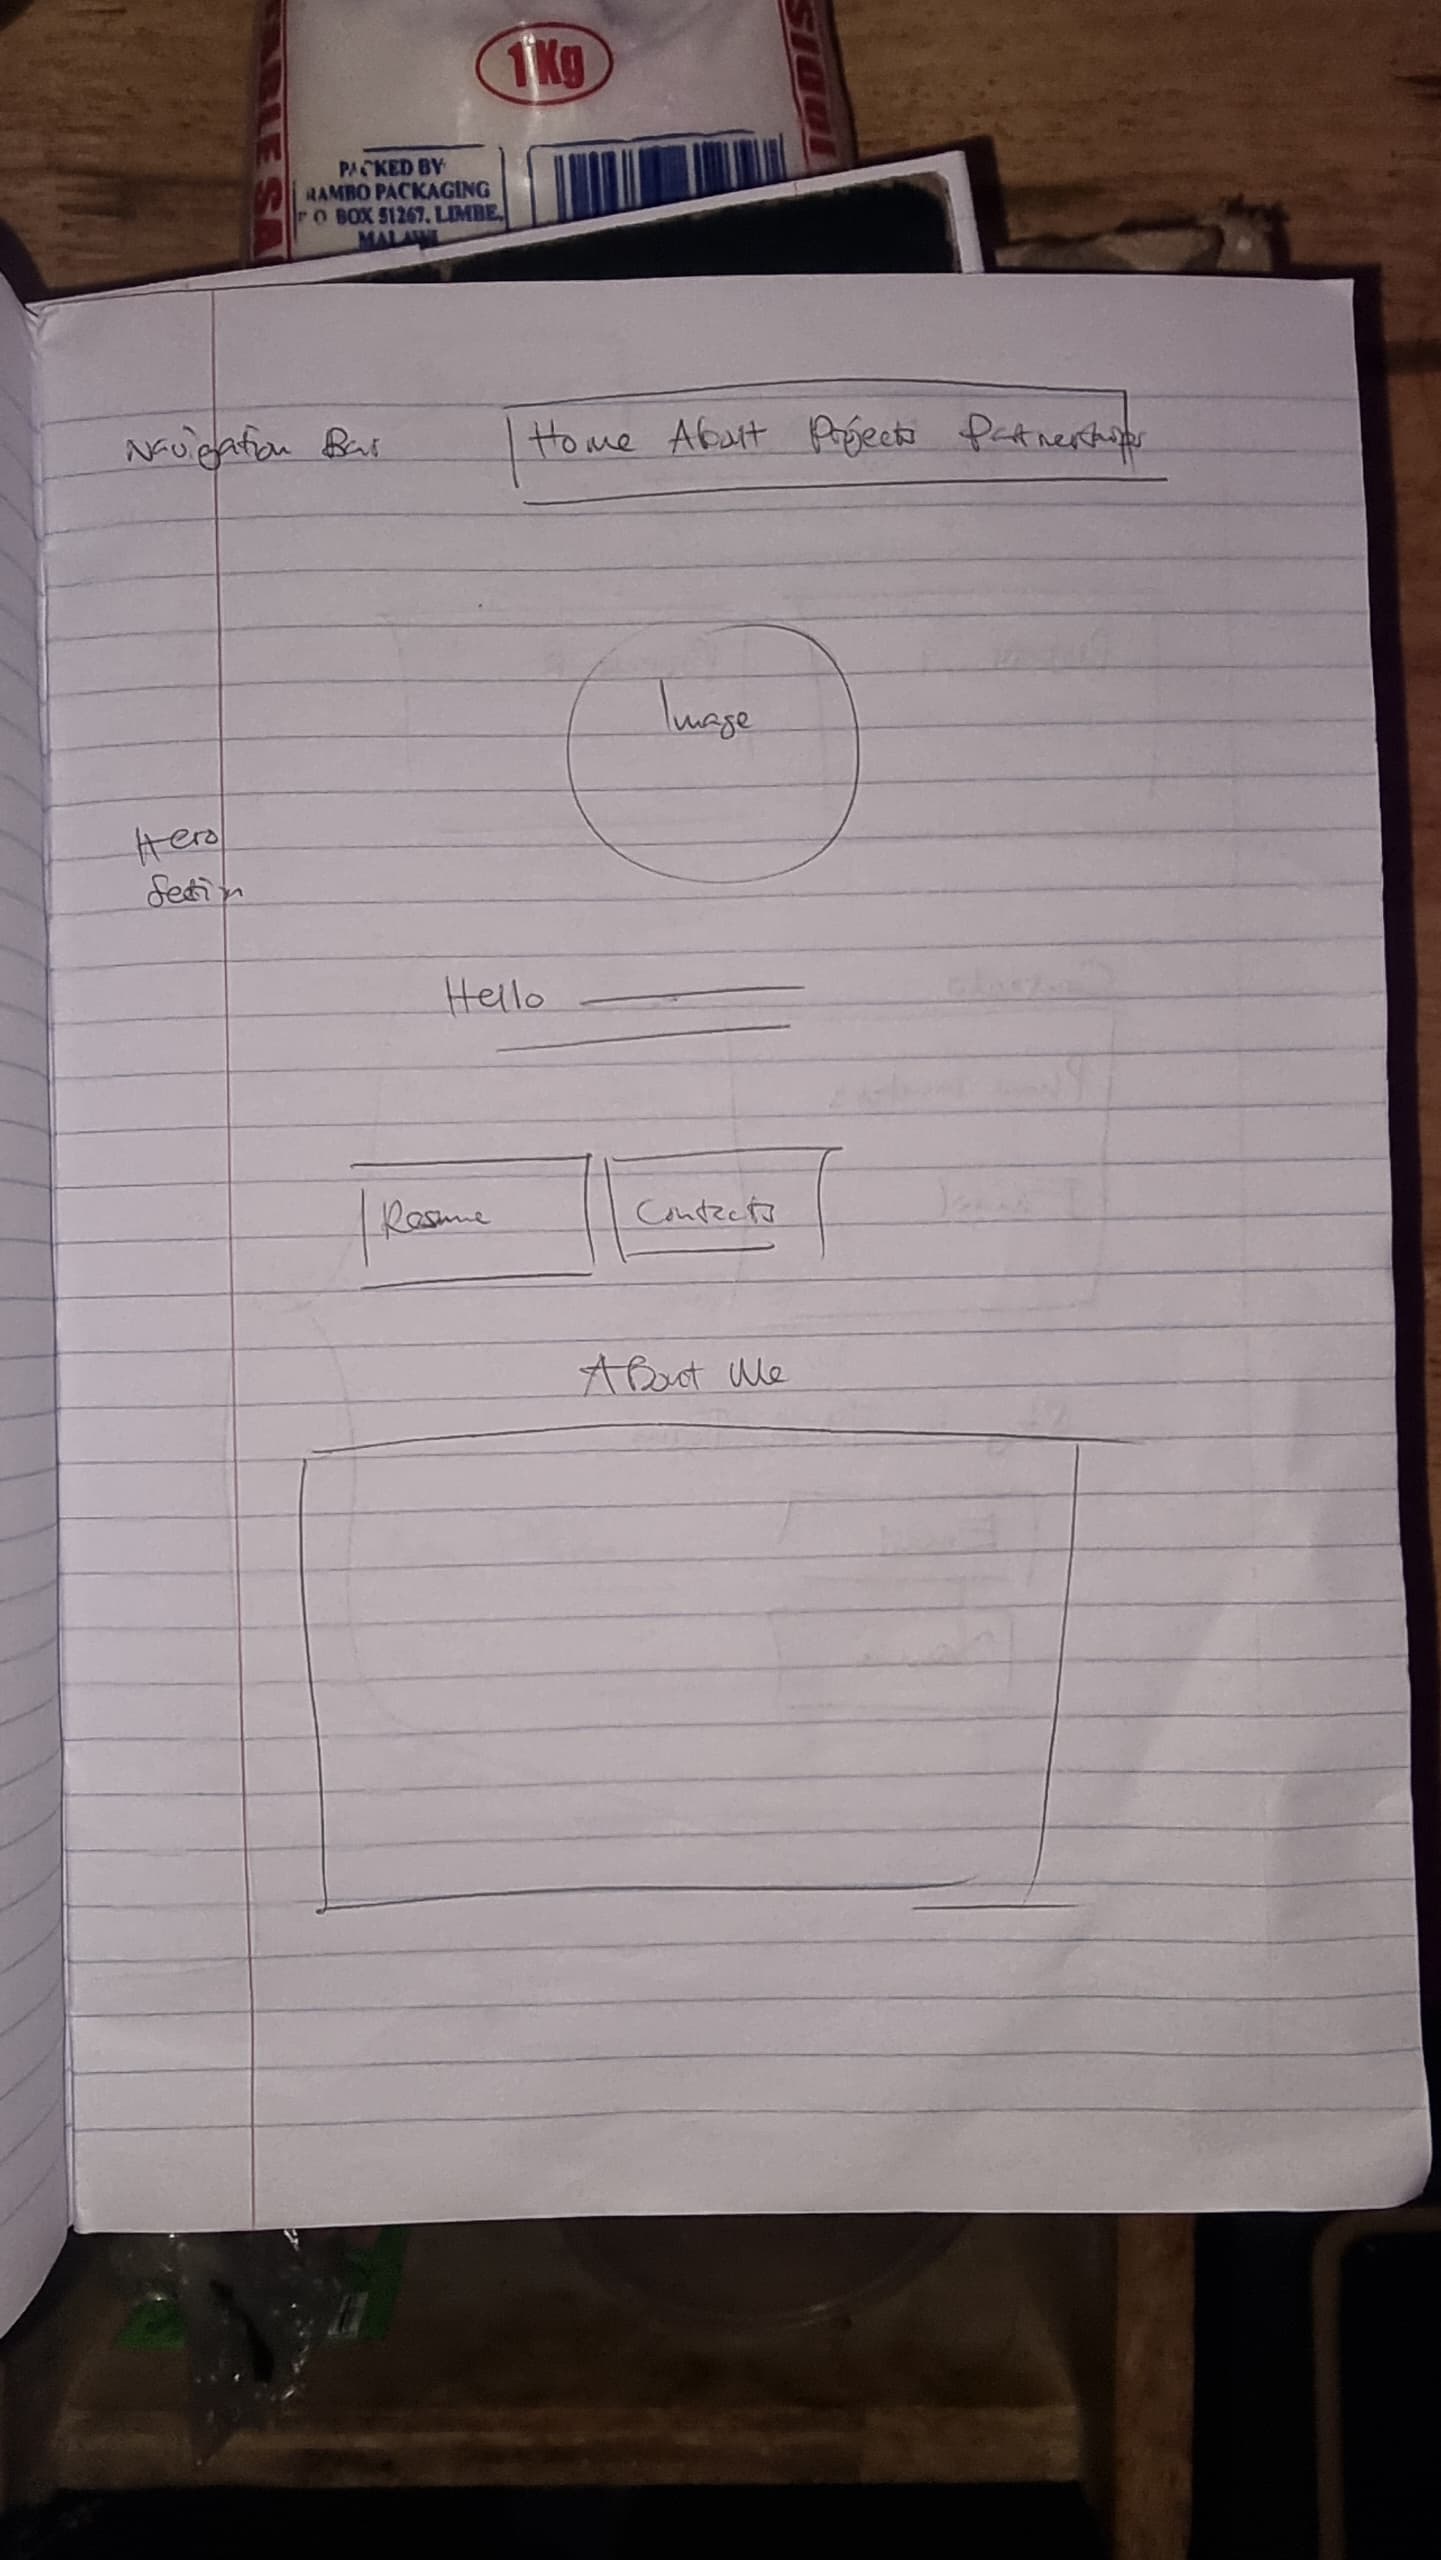 1Kg
PACKED BY
RAMBO PACKAGING
P O BOX 51267, LIMBE,
MALAWI
Navigation Bar
Home About Projects Partnerships
Image
Hero
Section
Hello
Resume
Contacts
About Me